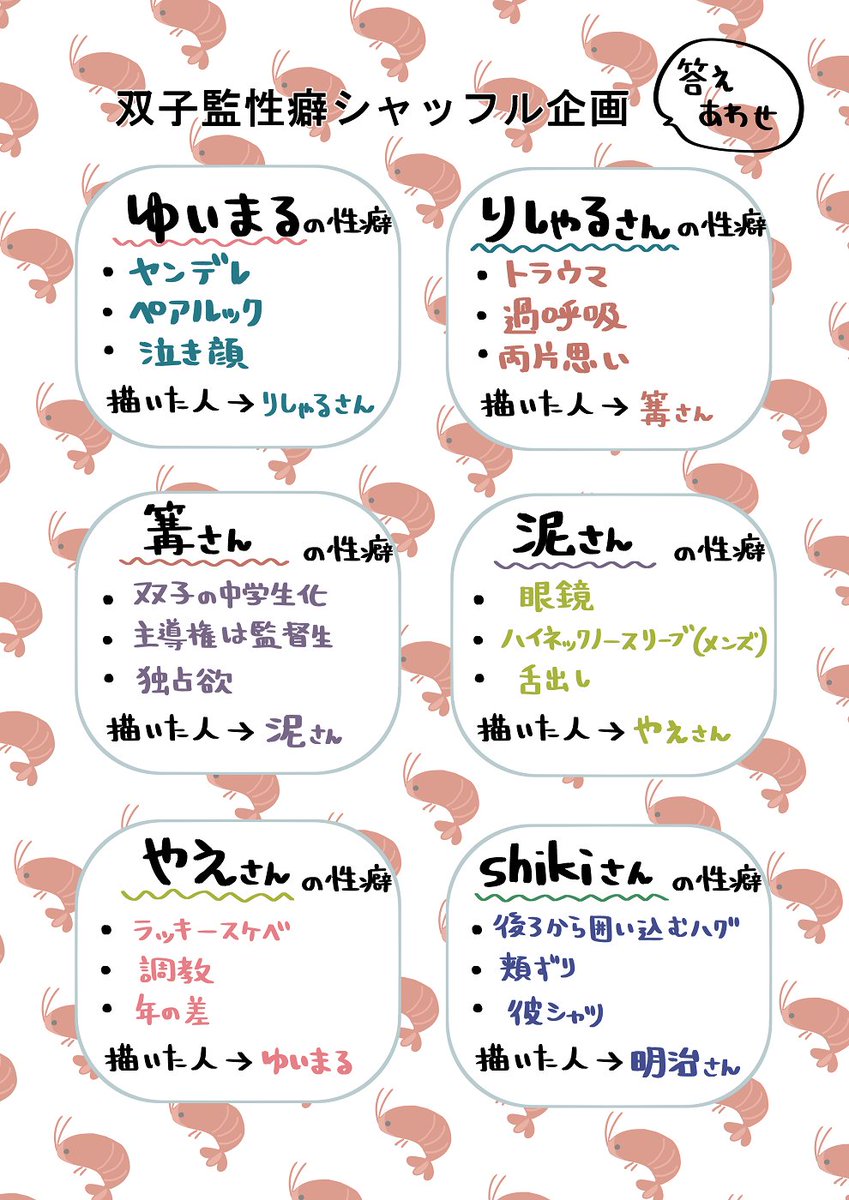 双子監性癖シャッフル企画
答え
あわせ
ゆいまるの性癖
・ヤンデレ
・ペアルック
・泣き顔
描いた人→りしゃるさん
りしゃるさんの性癖
・トラウマ
・過呼吸
・両片思い
描いた人→篝さん
篝さんの性癖
・双子の中学生化
・主導権は監督生
・独占欲
描いた人→泥さん
泥さんの性癖
・眼鏡
・ハイネックノースリーブ(メンズ)
・舌出し
描いた人→やえさん
やえさんの性癖
・ラッキースケベ
・調教
・年の差
描いた人→ゆいまる
shikiさんの性癖
・後ろから囲い込むハグ
・頬ずり
・彼シャツ
描いた人→明治さん